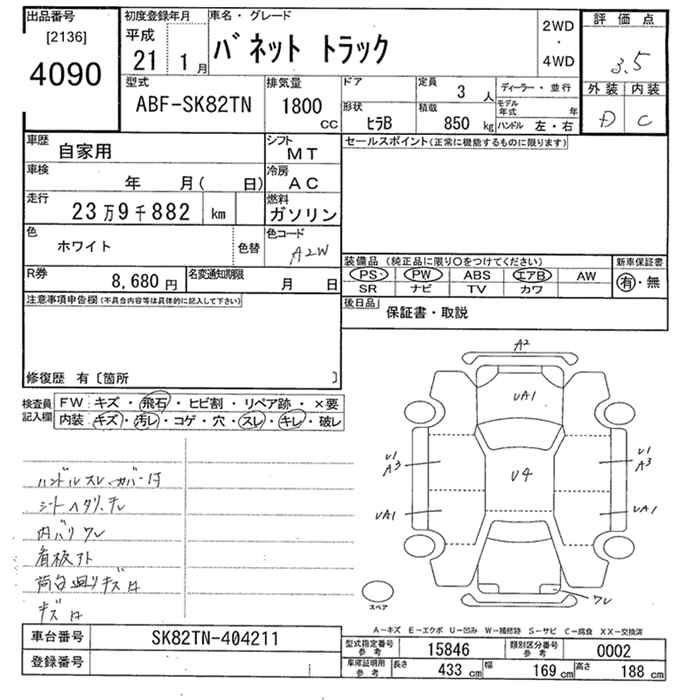 出品番号
[2136]
4090
初度登録年月
平成
21 1月
車名・グレード
バネット トラック
2WD
・
4WD
評価点
3.5
外装 内装
D C
型式
ABF-SK82TN
排気量
1800
CC
ドア
形状
ヒラB
定員
3 人
積載
850 kg
ディーラー・並行
モデル年式 年
ハンドル 左・右
車歴
自家用
シフト
MT
セールスポイント(正常に機能するものに限ります)
車検
年 月( 日)
冷房
AC
走行
23万9千882 km
燃料
ガソリン
色
ホワイト
色替
色コード
A2W
装備品 (純正品に限り〇をつけてください)
PS PW ABS エアB AW
SR ナビ TV カワ
新車保証書
有・無
R券
8,680円
名変通知期限
月 日
後日品
保証書・取説
注意事項申告欄(不具合内容等は具体的に記入して下さい)
修復歴 有〔箇所 〕
検査員記入欄
FW キズ・飛石・ヒビ割・リペア跡・×要
内装 キズ・汚レ・コゲ・穴・スレ・キレ・破レ
ハンドルスレ、カバー付
シートヘタリ、チレ
内バリワレ
看板アト
荷台廻りキズ有
キズ有
A2
UA1
U1
A3
U4
U1
A3
UA1
UA1
ワレ
スペア
A-キズ E-エクボ U-凹み W-補修跡 S-サビ C-腐食 XX-交換済
車台番号
SK82TN-404211
登録番号
型式指定番号参考
15846
類別区分番号参考
0002
車庫証明用参考
長さ 433 cm
幅 169 cm
高さ 188 cm